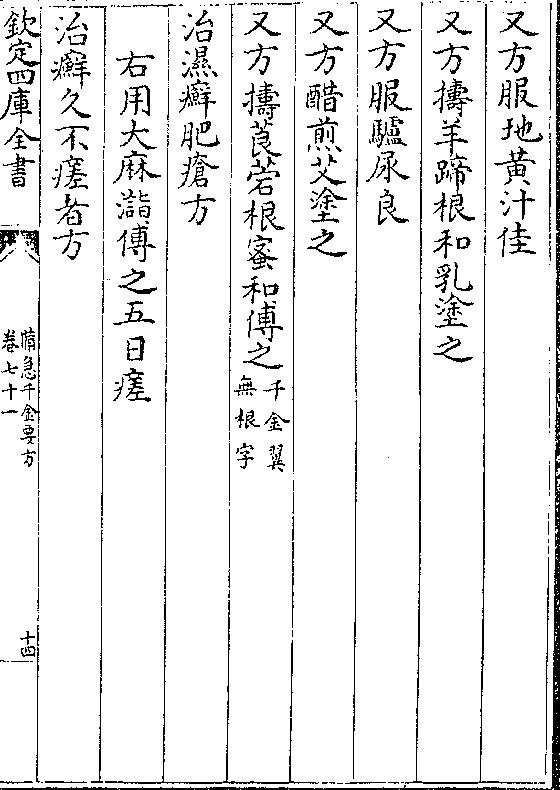 又方服地黄汁佳
又方擣羊蹄根和乳塗之
又方服驢尿良
又方醋煎艾塗之
又方擣莨菪根蜜和傅之千金翼無根字
治濕癬肥瘡方
右用大麻㵽傅之五日瘥
治癬久不瘥者方
欽定四庫全書
備急千金要方
卷七十一
十四